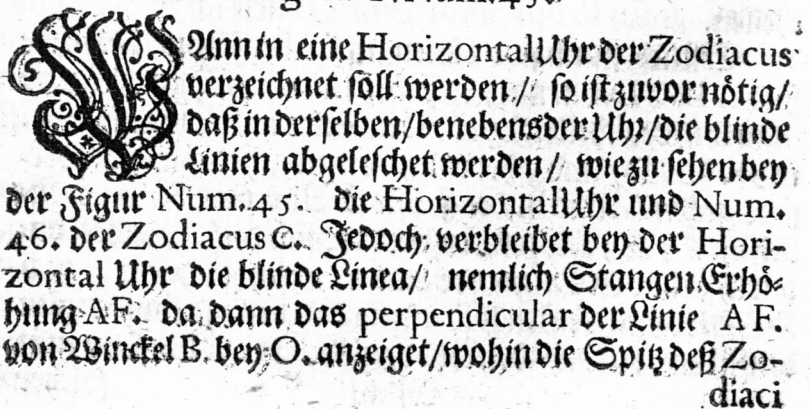 WAnn in eine HorizontalUhr der Zodiacus
verzeichnet soll werden / so ist zuvor nötig /
daß in derselben / benebens der Uhr / die blinde
Linien abgeleschet werden / wie zu sehen bey
der Figur Num. 45. die HorizontalUhr und Num.
46. der Zodiacus C. Jedoch verbleibet bey der Hori-
zontal Uhr die blinde Linea / nemlich Stangen Erhö-
hung AF. da dann das perpendicular der Linie AF.
von Winckel B. bey O. anzeiget / wohin die Spitz deß Zo-
diaci